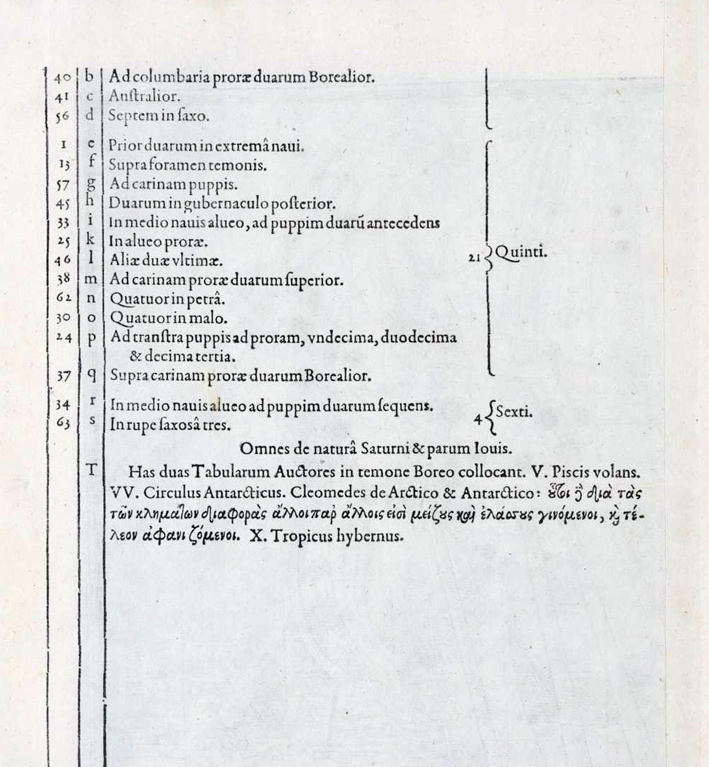 40 b Ad columbaria proræ duarum Borealior.
41 c Auſtralior.
56 d Septem in ſaxo.
1 e Prior duarum in extremâ naui.
13 f Supra foramen temonis.
57 g Ad carinam puppis.
45 h Duarum in gubernaculo poſterior.
33 i In medio nauis alueo, ad puppim duarū antecedens
25 k In alueo proræ.
21 Quinti.
46 l Aliæ duæ vltimæ.
38 m Ad carinam proræ duarum ſuperior.
62 n Quatuor in petrâ.
30 o Quatuor in malo.
24 p Ad tranſtra puppis ad proram, vndecima, duodecima
& decima tertia.
37 q Supra carinam proræ duarum Borealior.
34 r In medio nauis alueo ad puppim duarum ſequens.
4 Sexti.
63 s In rupe ſaxosâ tres.
Omnes de naturâ Saturni & parum Iouis.
T Has duas Tabularum Auctores in temone Boreo collocant. V. Piscis volans.
VV. Circulus Antarcticus. Cleomedes de Arctico & Antarctico: οὗτοι δὲ διὰ τὰς
τῶν κλημάτων διαφορὰς ἄλλοι παρ ἄλλοις εἰσὶ μείζους καὶ ἐλάσσους γινόμενοι, καὶ τέ-
λεον ἀφανιζόμενοι. X. Tropicus hybernus.